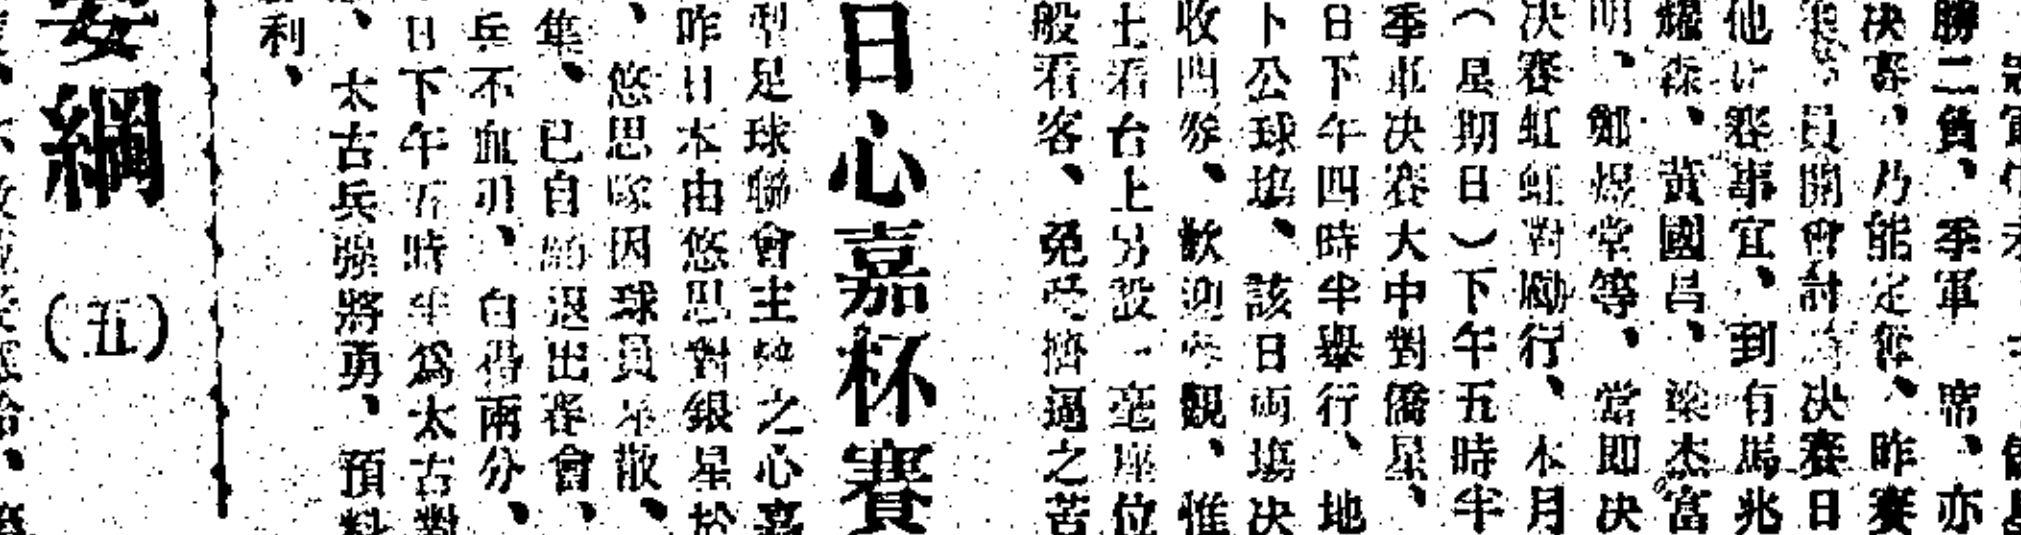 勝二負、季軍一席、亦
决賽、乃能定奪、昨賽
員開會討論决賽日
他比賽事宜、到有馬兆
耀森、黃國昌、梁杰富
明、鄭煜堂等、當即决
决賽虹虹對勵行、本月
（星期日）下午五時半
季軍决賽大中對僑星、
日下午四時半舉行、地
卜公球塲、該日両塲决
收四券、歡迎參觀、惟
士看台上另設一毫座位
般看客、免受擠逼之苦
日心嘉杯賽
型足球聯會主辦之心嘉
昨日本由悠思對銀星於
、悠思隊因球員星散、
集、已自動退出賽會、
兵不血刃、白得兩分、
日下午五時半爲太古對
、太古兵強將勇、預料
利、
要綱
（五）